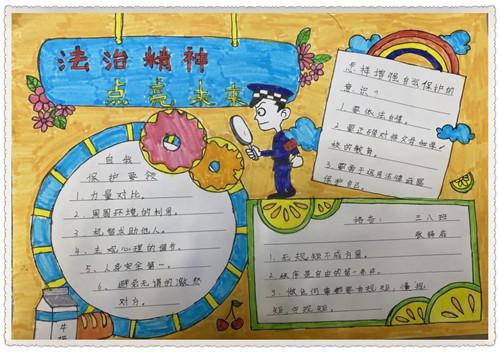 法治精神
点亮未来
自我
保护要领
1.力量对比。
2.周围环境的利用。
3.机智求助他人。
4.主观心理的调节。
5.人身安全第一
6.避免无谓的激怒
对方。
怎样增强自我保护的
意识。
1.要依法自律。
2.要正确对待父母和学
校的教育。
3.要善于运用法律武器
保护自己。
三八班
1.无规矩不成方圆。
2.秩序是自由的第一条件。
3.做任何事都要有规矩，懂规
矩，守规矩。